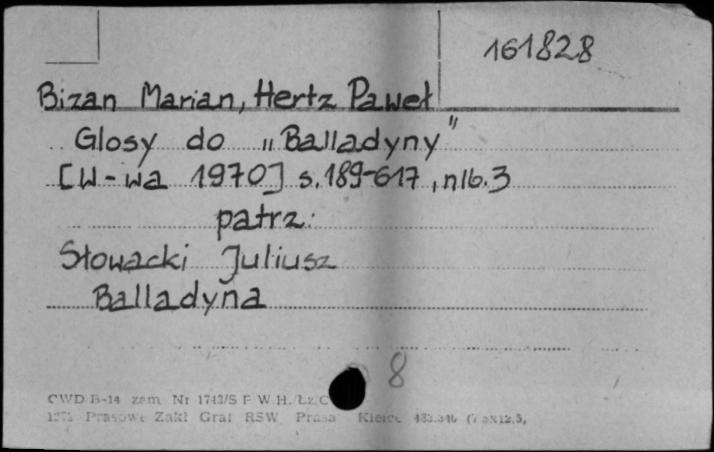 161828
Bizan Marian, Hertz Paweł
Glosy do „Balladyny"
[W-wa 1970] s. 189-617, nlb. 3
patrz:
Słowacki Juliusz
Balladyna
8
CWD B-14 zam. Nr 1743/S F W H. Łz.C
Prasowe Zakł Graf RSW Prasa Kielce